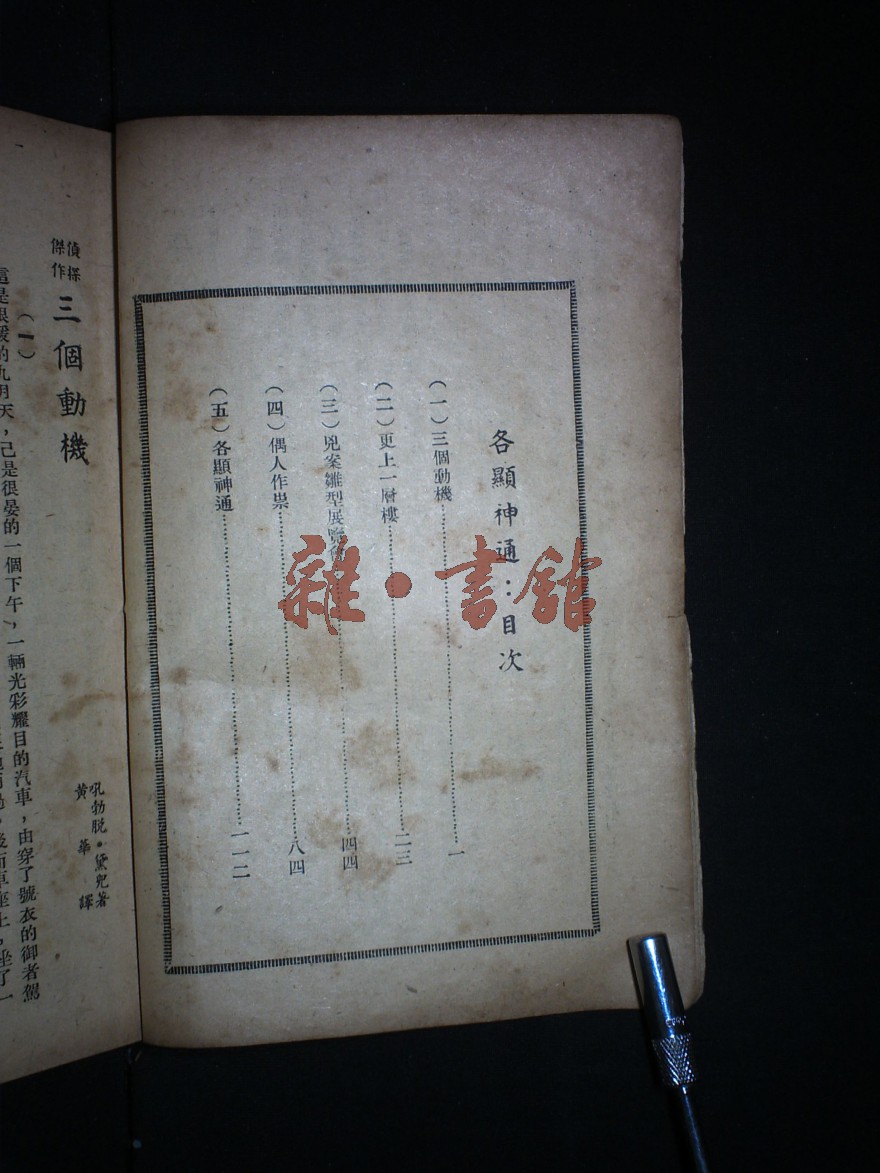 各顯神通：目次
（一）三個動機……一
（二）更上一層樓……二三
（三）兇案雛型展覽會……四四
（四）偶人作祟……八四
（五）各顯神通……一一二
雜·書館
偵探傑作
三個動機
吼勃脱·黛兜著
黄華譯
（一）
這是很暖的九月天，已是很晏的一個下午，一輛光彩耀目的汽車，由穿了號衣的御者駕
後面車座上，坐了一